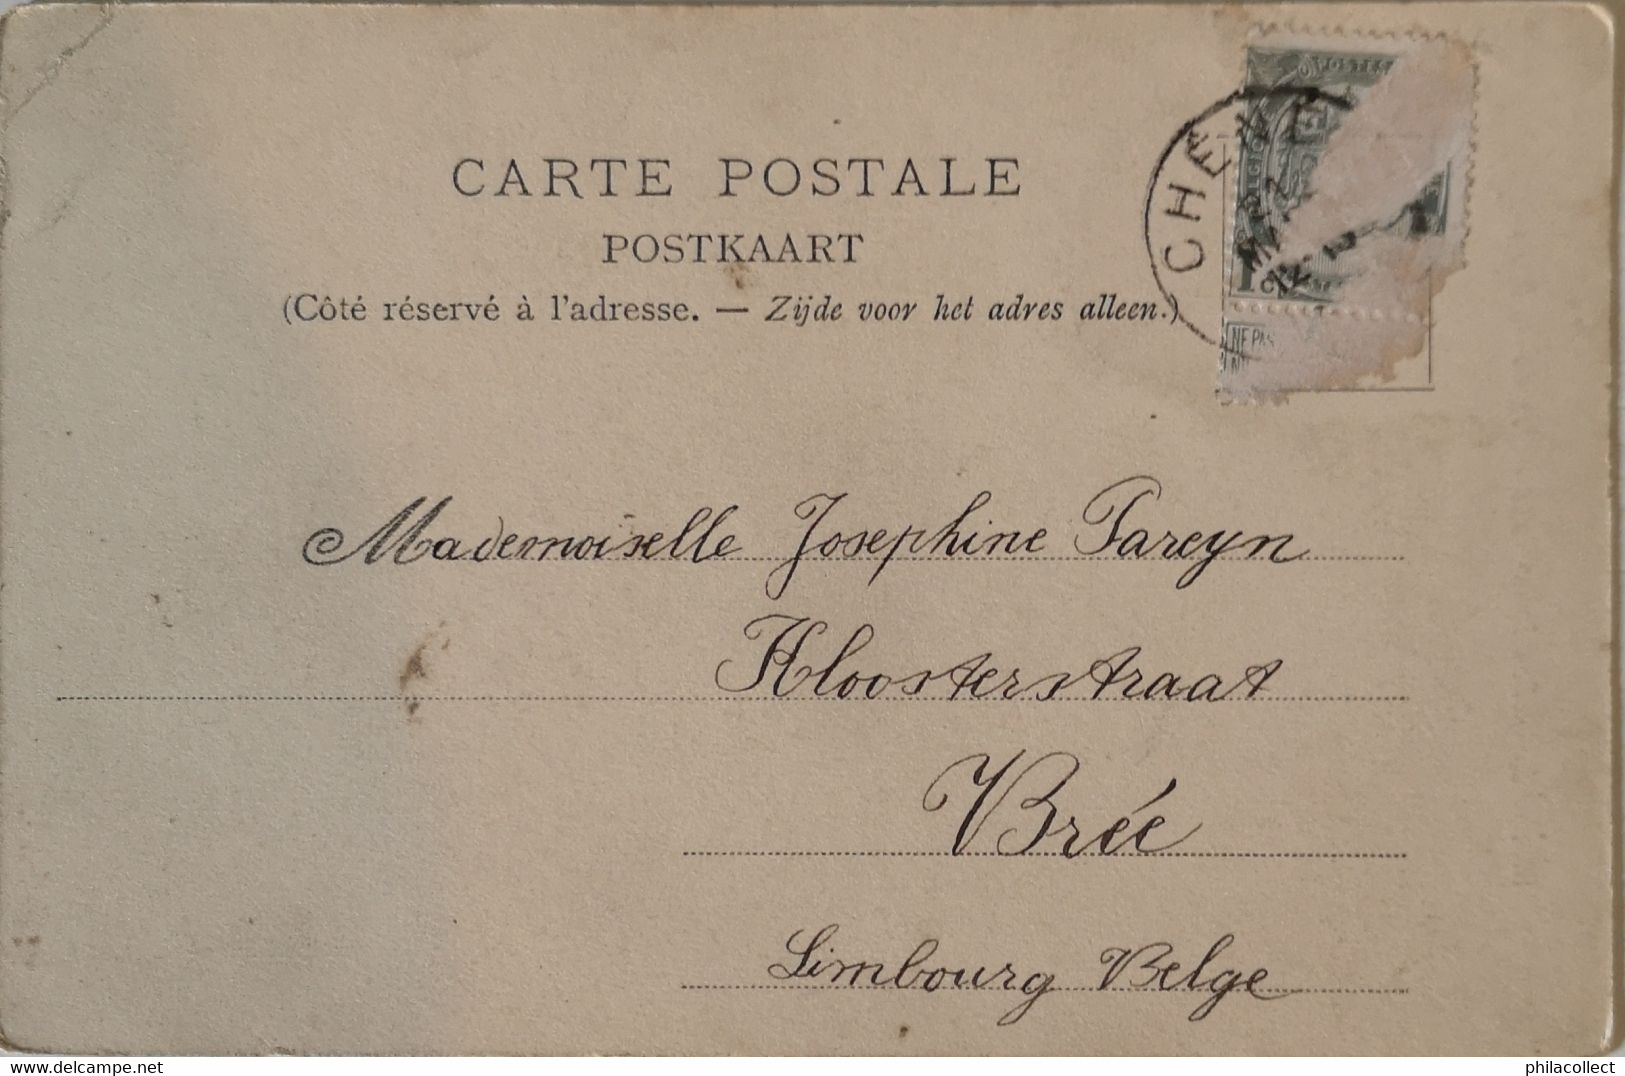 CARTE POSTALE
POSTKAART
(Côté réservé à l'adresse. — Zijde voor het adres alleen.)
POSTES
NE PAS
Mademoiselle Josephine Tareyn
Kloosterstraat
Brée
Limbourg Belge
www.delcampe.net
philacollect